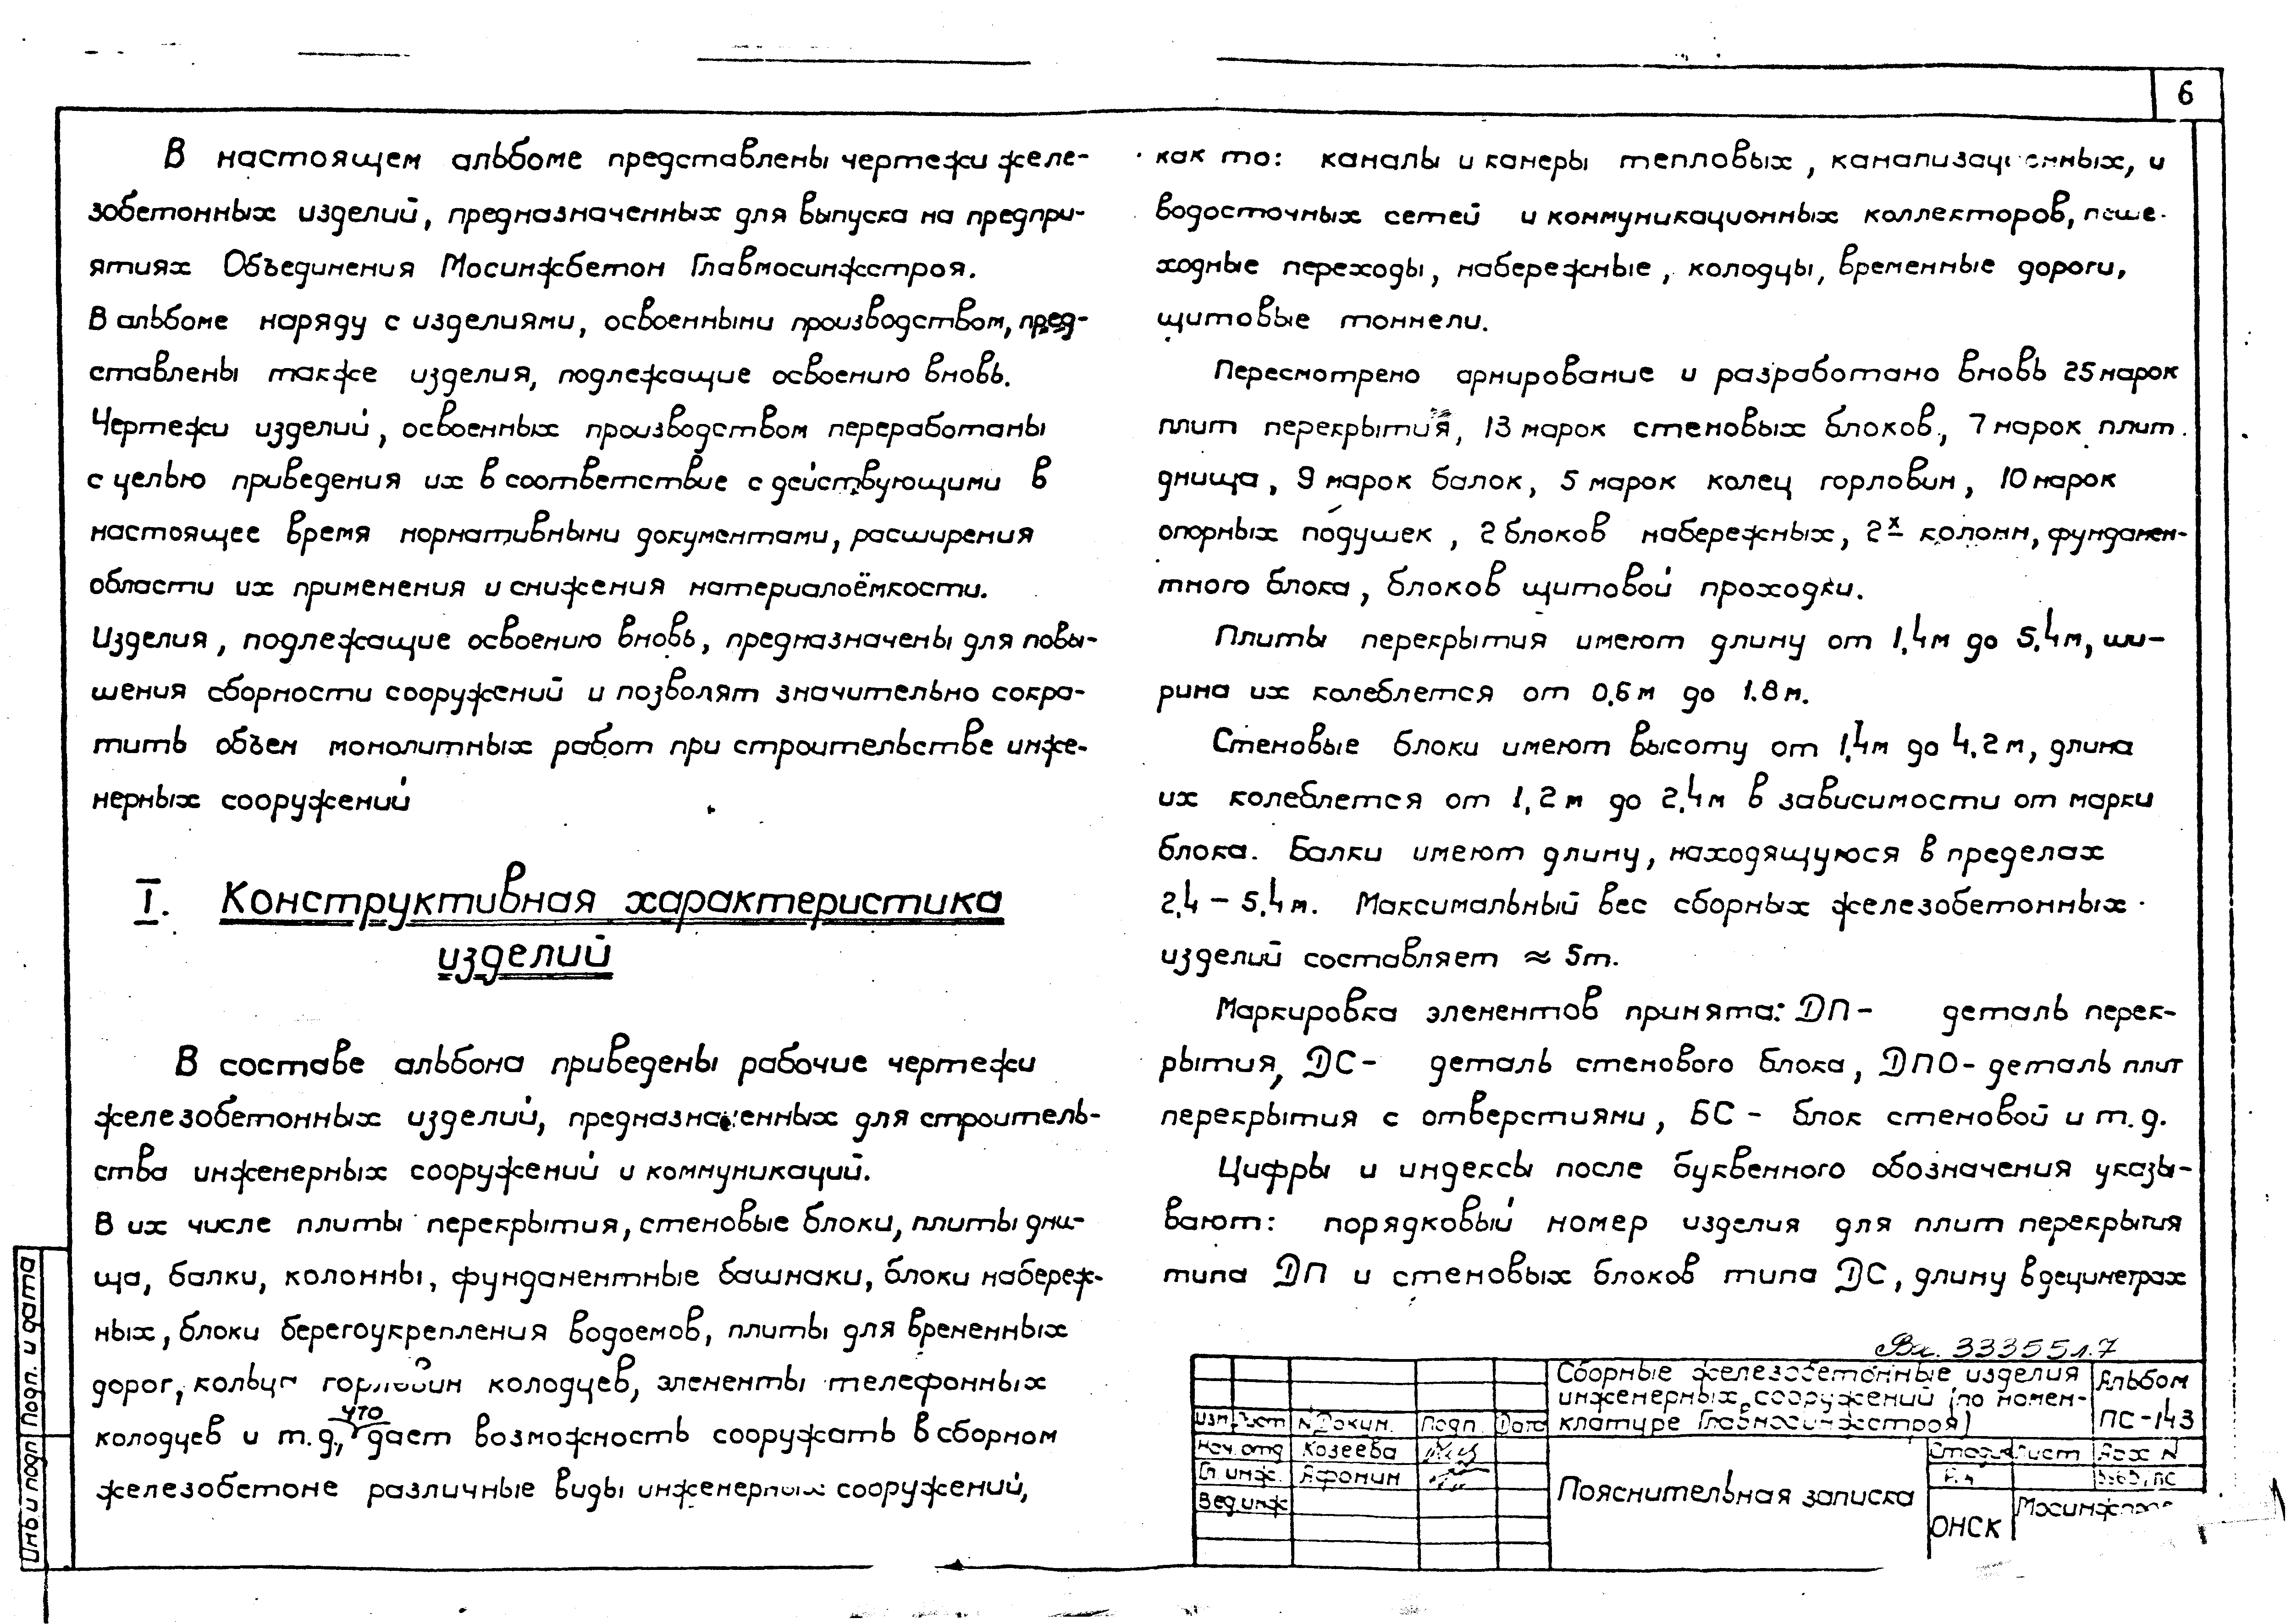 6
В настоящем альбоме представлены чертежи желе-
зобетонных изделий, предназначенных для выпуска на предпри-
ятиях Объединения Мосинжбетон Главмосинжстроя.
В альбоме наряду с изделиями, освоенными производством, пред-
ставлены также изделия, подлежащие освоению вновь.
Чертежи изделий, освоенных производством переработаны
с целью приведения их в соответствие с действующими в
настоящее время нормативными документами, расширения
области их применения и снижения материалоёмкости.
Изделия, подлежащие освоению вновь, предназначены для повы-
шения сборности сооружений и позволят значительно сокра-
тить объем монолитных работ при строительстве инже-
нерных сооружений
I. Конструктивная характеристика
изделий
В составе альбома приведены рабочие чертежи
железобетонных изделий, предназначенных для строитель-
ства инженерных сооружений и коммуникаций.
В их числе плиты перекрытия, стеновые блоки, плиты дни-
ща, балки, колонны, фундаментные башмаки, блоки набереж-
ных, блоки берегоукрепления водоемов, плиты для временных
дорог, кольца горловин колодцев, элементы телефонных
колодцев и т.д., что дает возможность сооружать в сборном
железобетоне различные виды инженерных сооружений,
как то: каналы и камеры тепловых, канализационных, и
водосточных сетей и коммуникационных коллекторов, пеше-
ходные переходы, набережные, колодцы, временные дороги,
щитовые тоннели.
Пересмотрено армирование и разработано вновь 25 марок
плит перекрытия, 13 марок стеновых блоков, 7 марок плит
днища, 9 марок балок, 5 марок колец горловин, 10 марок
опорных подушек, 2 блоков набережных, 2х колонн, фундамен-
тного блока, блоков щитовой проходки.
Плиты перекрытия имеют длину от 1,4м до 5,4м, ши-
рина их колеблется от 0,6м до 1.8м.
Стеновые блоки имеют высоту от 1,4м до 4,2м, длина
их колеблется от 1,2м до 2,4м в зависимости от марки
блока. Балки имеют длину, находящуюся в пределах
2,4 – 5,4м. Максимальный вес сборных железобетонных
изделий составляет ≈ 5т.
Маркировка элементов принята: ДП – деталь перек-
рытия, ДС – деталь стенового блока, ДПО – деталь плит
перекрытия с отверстиями, БС – блок стеновой и т.д.
Цифры и индексы после буквенного обозначения указы-
вают: порядковый номер изделия для плит перекрытия
типа ДП и стеновых блоков типа ДС, длину в дециметрах
Вх. 33355 л.7
Сборные железобетонные изделия
инженерных сооружений (по номен-
клатуре Главмосинжстроя)
Альбом
ПС-143
Изм. Лист № Докум. Подп. Дата
Нач. отд Козеева
Гл. инж. Афонин
Вед. инж
Пояснительная записка
Стадия Лист Арх №
ОНСК
Инв. и подп Подп. и дата